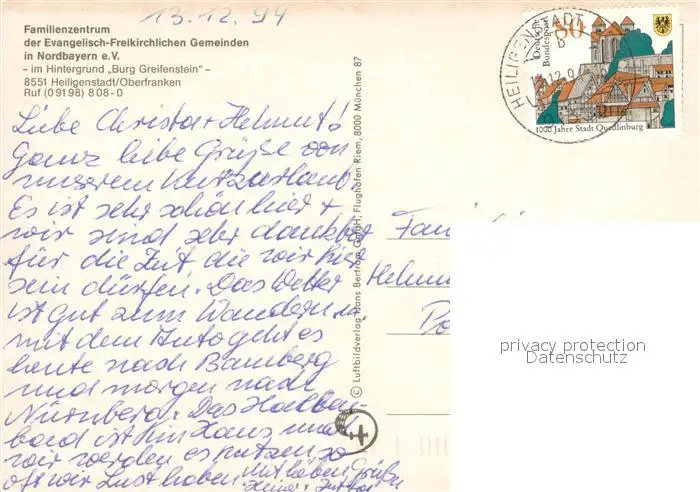 13.12.94
Familienzentrum
der Evangelisch-Freikirchlichen Gemeinden
in Nordbayern e.V.
– im Hintergrund „Burg Greifenstein“ –
8551 Heiligenstadt/Oberfranken
Ruf (0 91 98) 8 08-0
Liebe Christa + Helmut!
Ganz liebe Grüße von
unserem Kurzurlaub.
Es ist sehr schön hier +
wir sind sehr dankbar
für die Zeit die wir hier
sein dürfen. Das Wetter
ist gut zum Wandern u.
mit dem Auto geht es
heute nach Bamberg
und morgen nach
Nürnberg. Das Hallen-
bad ist im Haus und
wir werden es nutzen so
oft wir Lust haben.
Mit lieben Grüßen
Heinz + Jutta
© Luftbildverlag Hans Bertram GmbH, Flughafen Riem, 8000 München 87
HEILIGENSTADT
80
Deutsche
Bundespost
1000 Jahre Stadt Quedlinburg
Fam
Helmu
privacy protection
Datenschutz